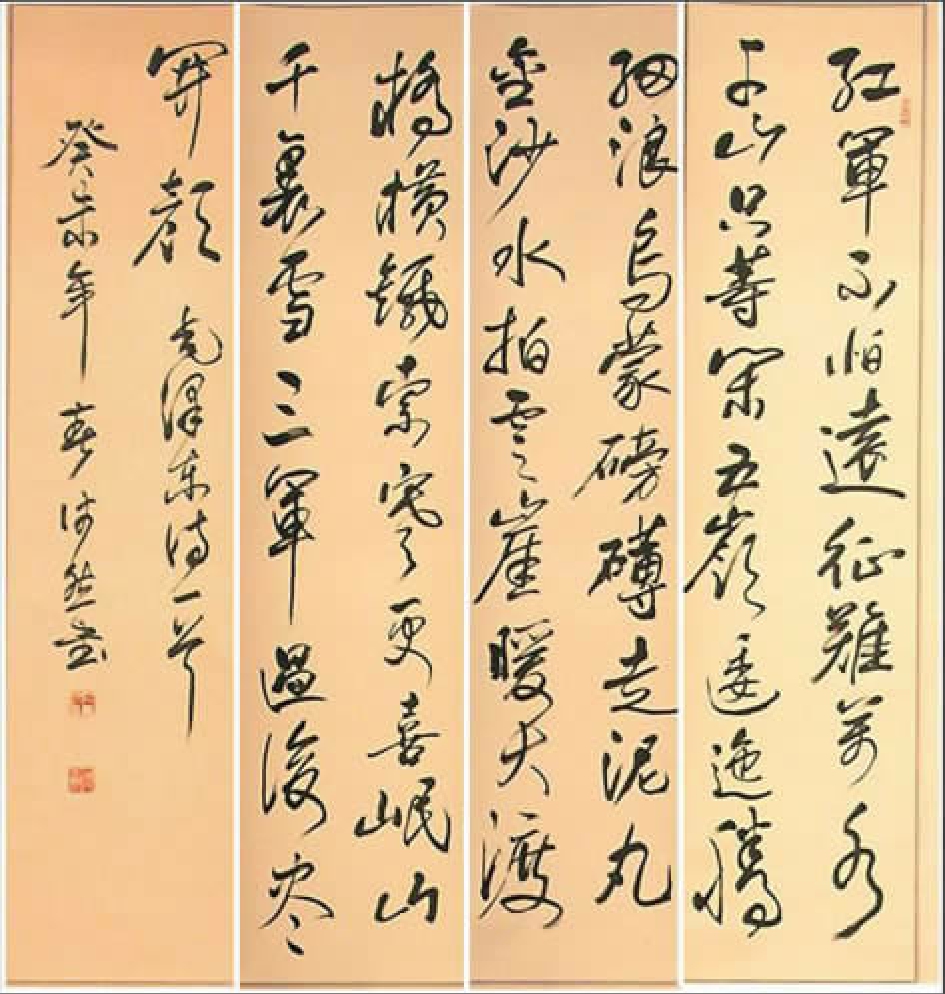 紅軍不怕遠征難萬水
千山只等閑五嶺逶迤騰
細浪烏蒙磅礴走泥丸
金沙水拍雲崖暖大渡
橋橫鐵索寒更喜岷山
千裏雪三軍過後尽
開顏 毛澤東詩一首
癸未年春然书